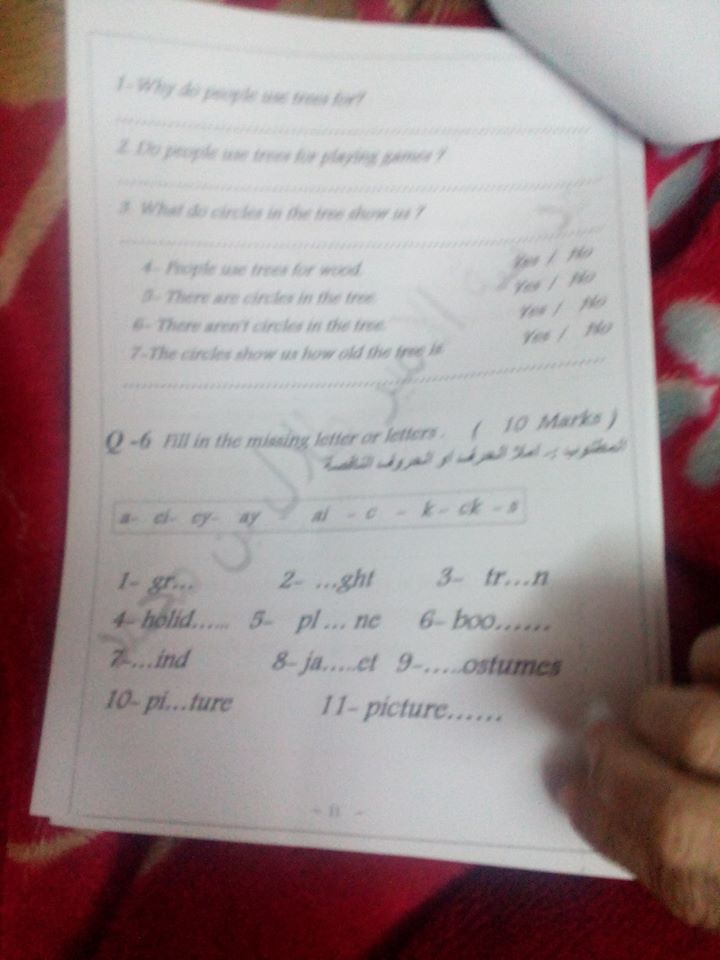 1- Why do people use trees for?
2. Do people use trees for playing games ?
3. What do circles in the tree show us ?
4- People use trees for wood. Yes / No
5- There are circles in the tree. Yes / No
6- There aren't circles in the tree. Yes / No
7-The circles show us how old the tree is Yes / No
Q -6 Fill in the missing letter or letters . ( 10 Marks )
المطلوب :- املا الحرف او الحروف الناقصة
a- ei- ey- ay - ai - c - k - ck - s
1- gr... 2- ...ght 3- tr...n
4- holid...... 5- pl ... ne 6- boo......
7-...ind 8- ja.....et 9-.....ostumes
10- pi...ture 11- picture......
- 11 -